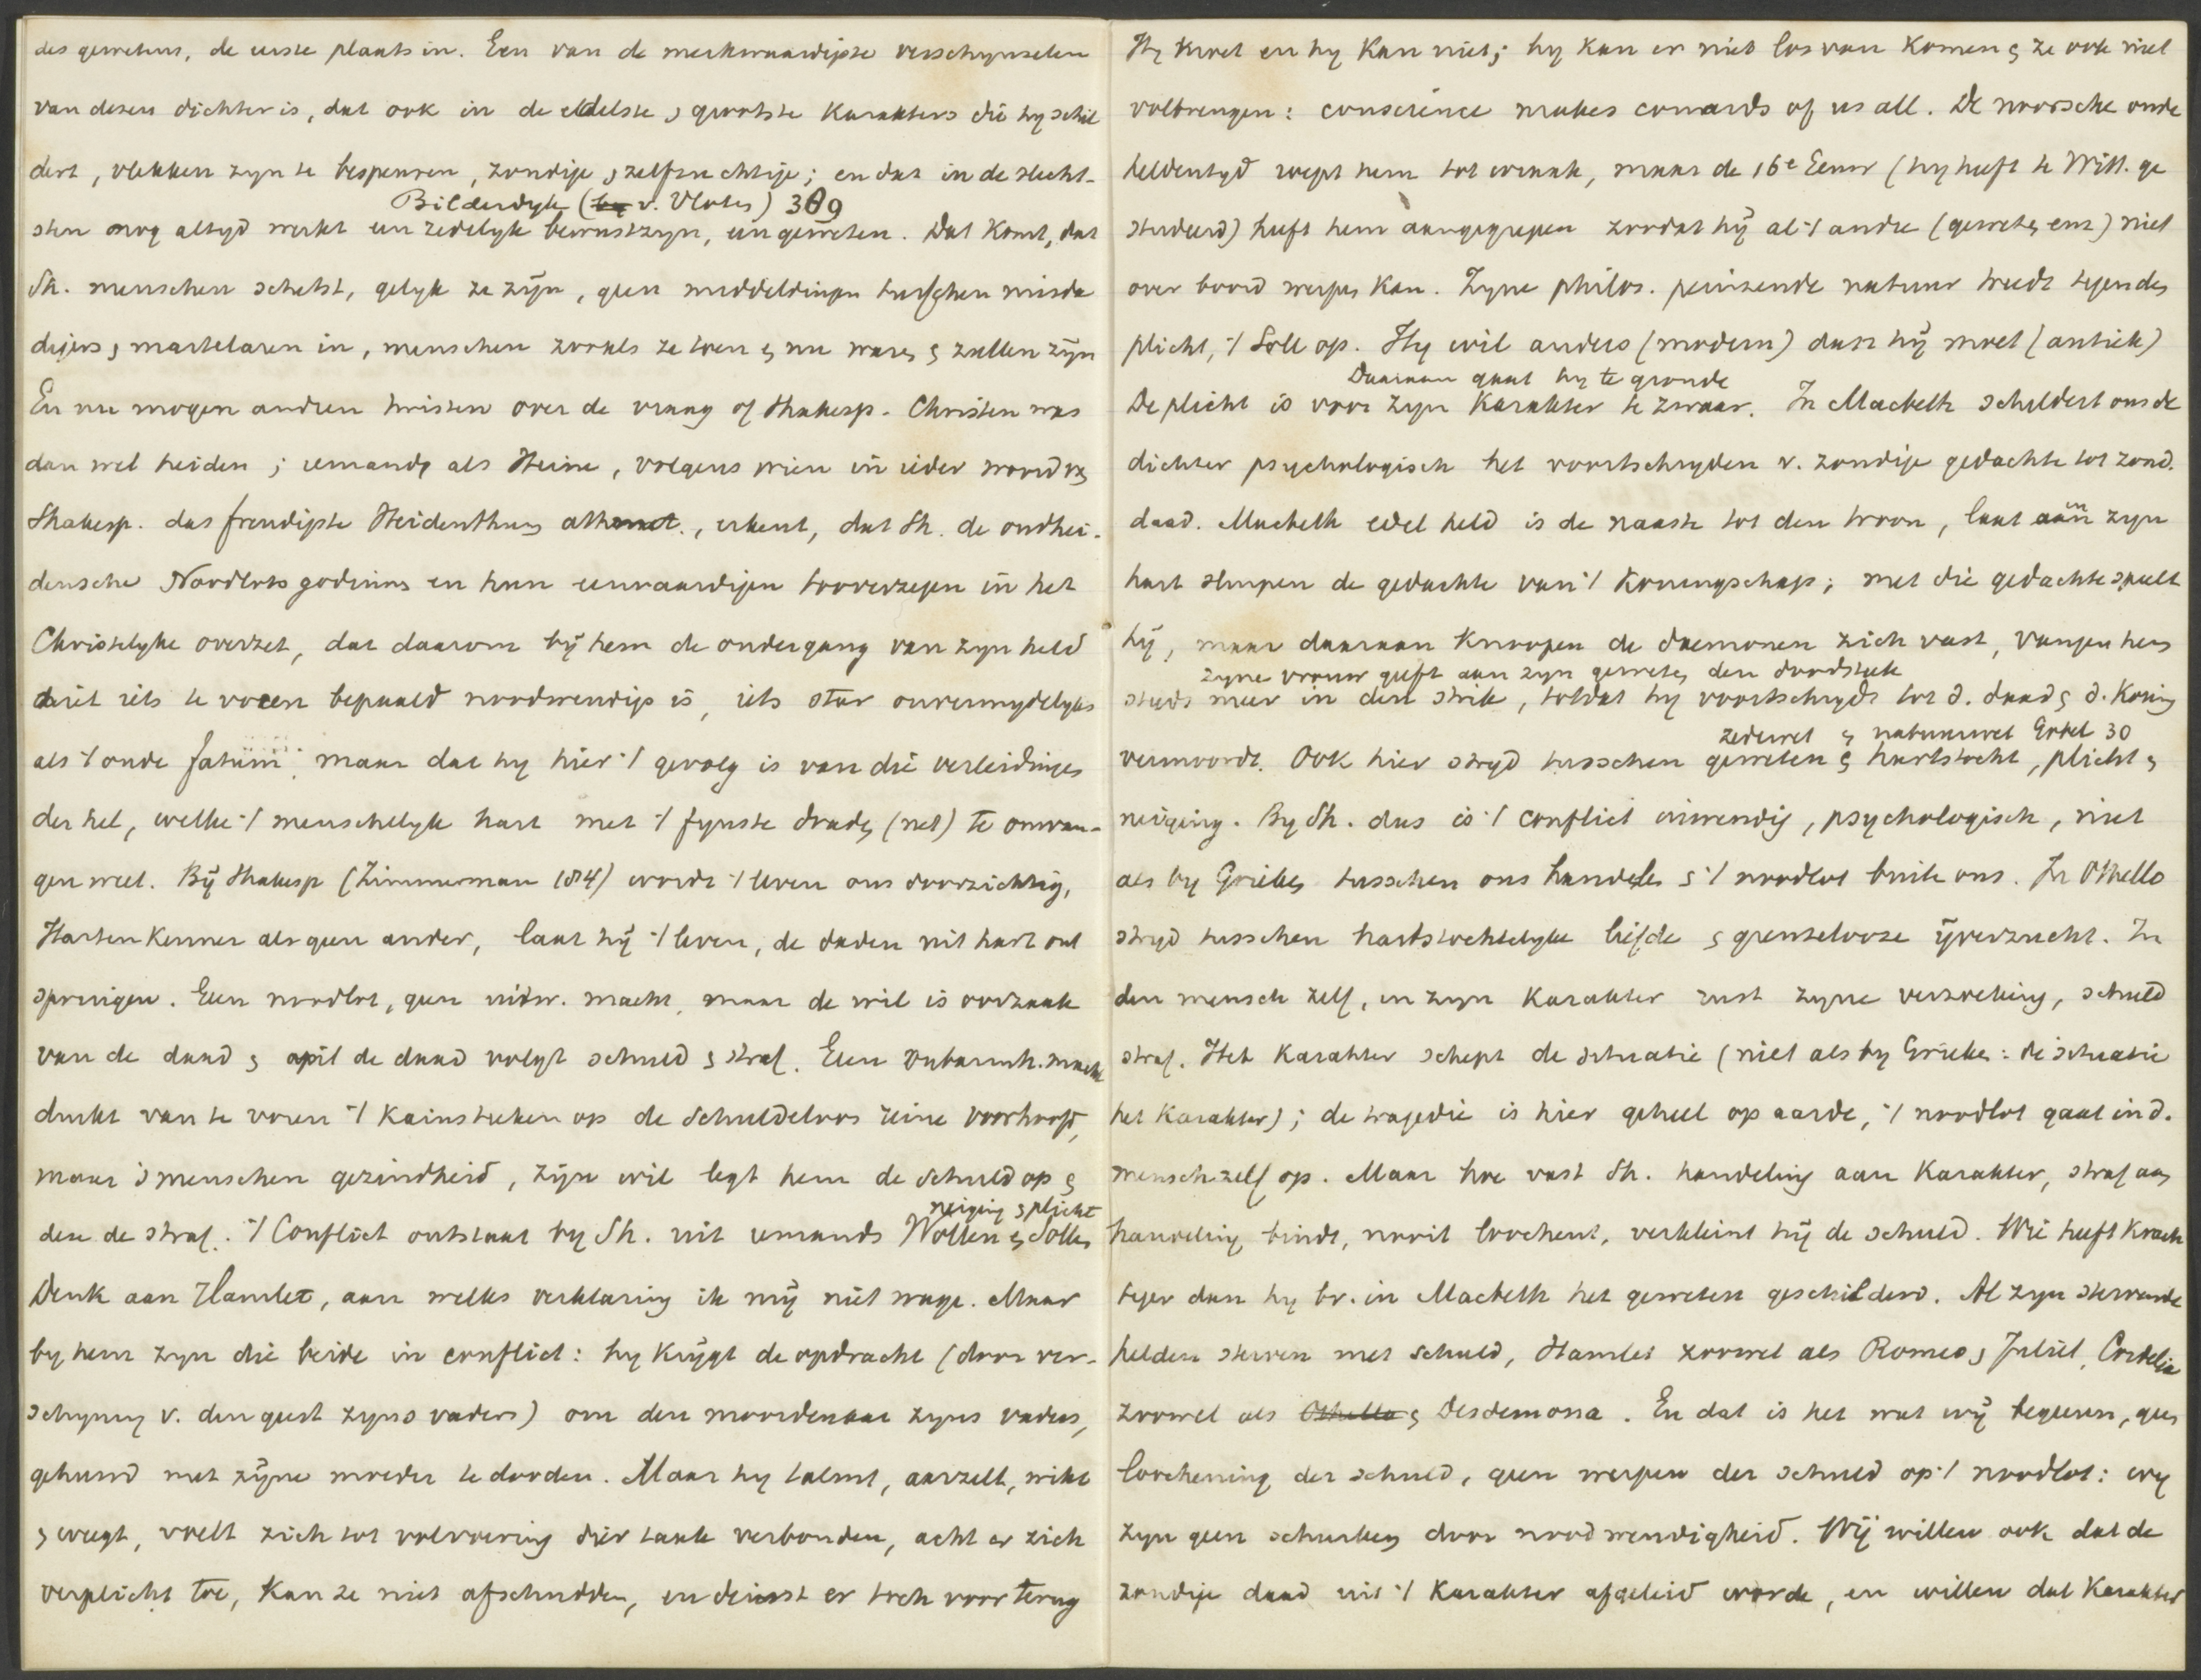 des gewetens, de eerste plaats in. Een van de merkwaardigste verschynselen
van dezen dichter is, dat ook in de edelste, grootste karakters die hy schil
dert, vlekken zyn te bespeuren, zondige, zelfzuchtige; en dat in de slecht-
Bilderdyk (by v. Vloten) 309
sten nog altyd werkt een zedelyk bewustzyn, een geweten. Dat komt, dat
Sh. menschen schetst, gelyk ze zijn, geen middeldingen tusschen misda
digers, martelaren in, menschen zooals ze toen & nu waren & zullen zijn
En nu mogen anderen twisten over de vraag of Shakesp. Christen was
dan wel heiden; iemand als Heine, volgens wien in ieder woord van
Shakesp. das freudigste Heidenthum athmet, erkent, dat Sh. de oudhei-
densche Noodlotsgodinnen en hun eerwaardigen tooverzegen in het
Christelyke overzet, dat daarom bij hem de ondergang van zyn held
niet iets te voren bepaald noodwendigs is, iets star onvermydelyks
als 't oude fatum, maar dat hy hier 't gevolg is van die verleidingen
der hel, welke 't menschelyk hart met 't fynste draden (net) te omvan-
gen weet. Bij Shakesp (Zimmerman 184) wordt 't leven ons doorzichtig,
Hartenkenner als geen ander, laat hij 't leven, de daden uit hart ont
springen. Een noodlot, geen uitw. macht, maar de wil is oorzaak
van de daad & op de daad volgt schuld & straf. Een onbarmh. macht
drukt van te voren 't Kainsteken op de schuldeloos reine voorhoofd,
maar 's menschen gezindheid, zijn wil legt hem de schuld op &
neiging & plicht
deze de straf. 't Conflict ontstaat by Sh. uit iemands Wollen & Sollen
Denk aan Hamlet, aan welks verklaring ik mij niet wage. Maar
by hem zyn die beide in conflict: hy krijgt de opdracht (door ver-
schyning v. den geest zyns vaders) om den moordenaar zyns vaders,
gehuwd met zijne moeder te dooden. Maar hy talmt, aarzelt, wikt
& weegt, voelt zich tot volvoering dier taak verbonden, acht er zich
verplicht toe, kan ze niet afschudden, en deinst er toch voor terug
Hy moet en hy kan niet; hy kan er niet los van komen & ze ook niet
volbrengen: conscience makes cowards of us all. De noorsche oude
heldentyd roept hem tot wraak, maar de 16e Eeuw (hy heeft te Witt. ge
studeerd) heeft hem aangegrepen zoodat hij al 't andre (geweten enz) niet
over boord werpen kan. Zyne philos. peinzende natuur treedt tegen den
plicht, 't Soll op. Hy wil anders (modern) dan hij moet (antiek)
Daaraan gaat hy te gronde
De plicht is voor zyn karakter te zwaar. In Macbeth schildert ons de
dichter psychologisch het voortschryden v. zondige gedachte tot zond.
daad. Macbeth edel held is de naaste tot den troon, laat in zyn
hart sluipen de gedachte van 't Koningschap; met die gedachte speelt
hij, maar daaraan knoopen de daemonen zich vast, vangen hem
zyne vrouw geeft aan zyn geweten den doodsteek
steeds meer in den strik, totdat hy voortschrydt tot d. daad & d. Koning
zedewet & natuurwet Gobel 30
vermoordt. Ook hier stryd tusschen geweten & hartstocht, plicht &
neiging. By Sh. dus is 't conflict inwendig, psychologisch, niet
als by Grieken tusschen ons handelen & 't noodlot buiten ons. In Othello
stryd tusschen hartstochtelyke liefde & grenzelooze ijverzucht. In
den mensch zelf, in zyn karakter rust zyne verzoeking, schuld
straf. Het karakter schept de situatie (niet als by Grieken: de situatie
het karakter); de tragedie is hier geheel op aarde, 't noodlot gaat in d.
mensch zelf op. Maar hoe vast Sh. handeling aan karakter, straf aan
handeling bindt, nooit loochent, verkleint hij de schuld. Wie heeft krach
tiger dan hy bv. in Macbeth het geweten geschilderd. Al zyn stervende
helden sterven met schuld, Hamlet zoowel als Romeo & Juliet, Cordelia
zoowel als Othello & Desdemona. En dat is het wat wij begeeren, geen
loochening der schuld, geen werpen der schuld op 't noodlot: wy
zyn geen schurken door noodwendigheid. Wij willen ook dat de
zondige daad uit 't karakter afgeleid worde, en willen dat karakter